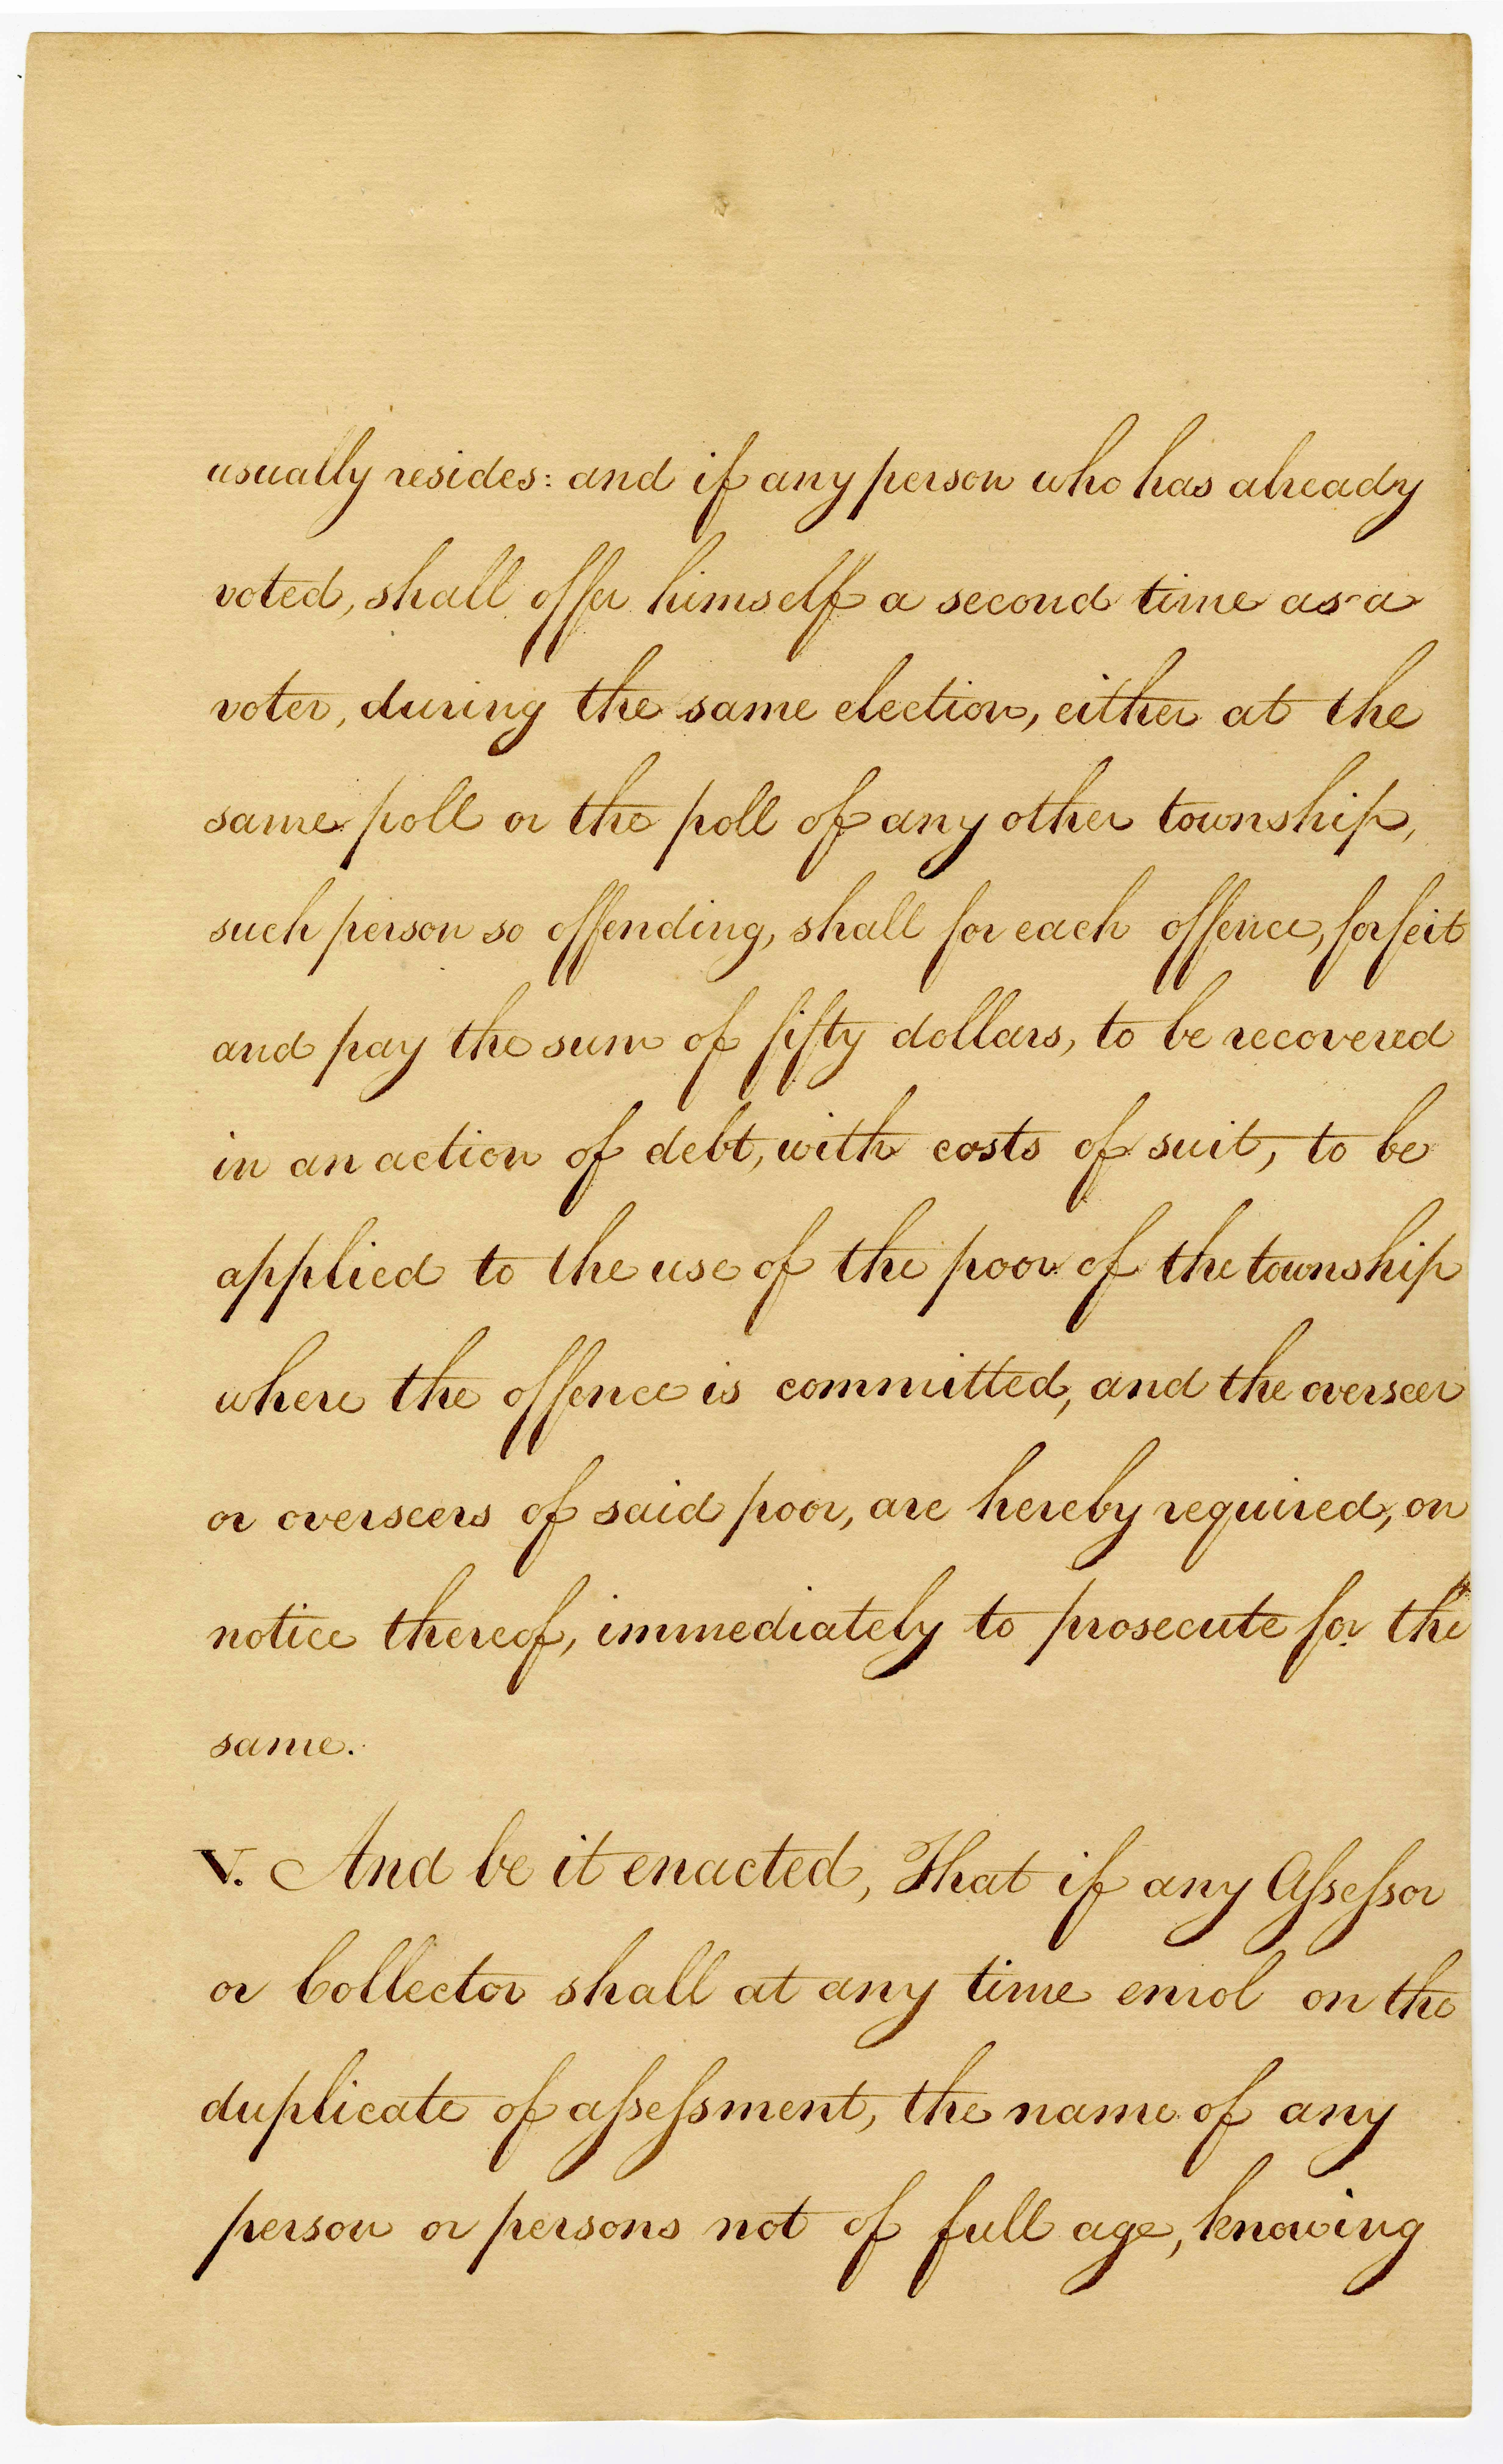 usually resides: and if any person who has already
voted, shall offer himself a second time as a
voter, during the same election, either at the
same poll or the poll of any other township,
such person so offending, shall for each offence, forfeit
and pay the sum of fifty dollars, to be recovered
in an action of debt, with costs of suit, to be
applied to the use of the poor of the township
where the offence is committed, and the overseer
or overseers of said poor, are hereby required, on
notice thereof, immediately to prosecute for the
same.
V. And be it enacted, That if any Aſseſsor
or Collector shall at any time enrol on the
duplicate of aſseſsment, the name of any
person or persons not of full age, knowing